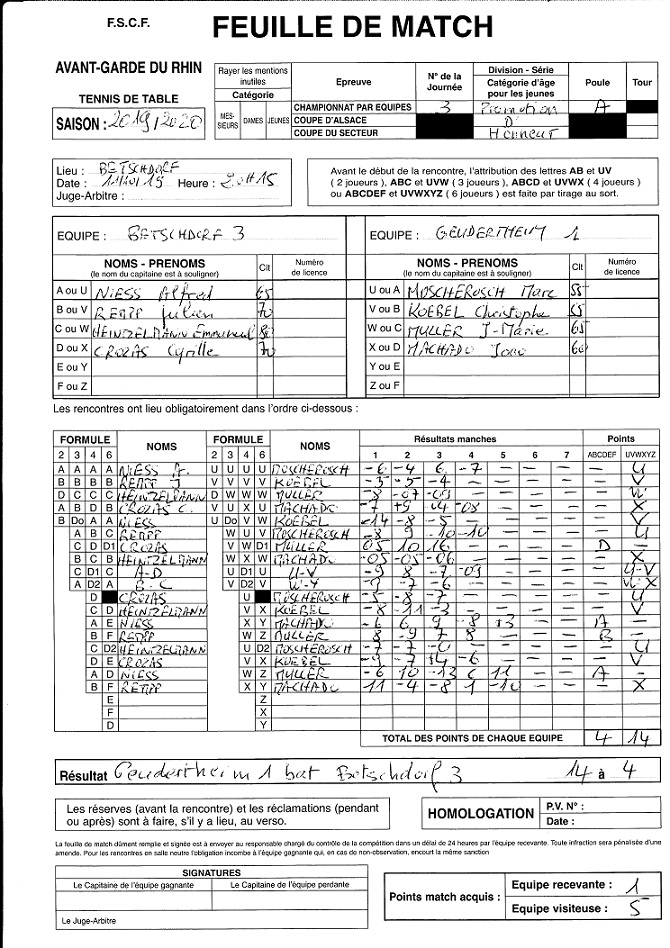 F.S.C.F.
FEUILLE DE MATCH
AVANT-GARDE DU RHIN
TENNIS DE TABLE
SAISON : 2019/2020
Rayer les mentions inutiles
Catégorie
MES-SIEURS DAMES JEUNES
Epreuve
N° de la Journée
Division - Série
Catégorie d'âge pour les jeunes
Poule
Tour
CHAMPIONNAT PAR EQUIPES 3 Promotion A
COUPE D'ALSACE D'
COUPE DU SECTEUR Honneur
Lieu : BETSCHDORF
Date : 11/10/19 Heure : 20H15
Juge-Arbitre :
Avant le début de la rencontre, l'attribution des lettres AB et UV
( 2 joueurs ), ABC et UVW ( 3 joueurs ), ABCD et UVWX ( 4 joueurs )
ou ABCDEF et UVWXYZ ( 6 joueurs ) est faite par tirage au sort.
EQUIPE : BETSCHDORF 3
EQUIPE : GEUDERTHEIM 1
NOMS - PRENOMS
(le nom du capitaine est à souligner)
Clt
Numéro de licence
NOMS - PRENOMS
(le nom du capitaine est à souligner)
Clt
Numéro de licence
A ou U NIESS Alfred 65 U ou A MOSCHEROSCH Marc 55
B ou V REMPP Julien 70 V ou B KOEBEL Christophe 65
C ou W HEINTZELMANN Emmanuel 80 W ou C MULLER J-Marie 65
D ou X CROZAS Cyrille 70 X ou D MACHADO Joao 60
E ou Y Y ou E
F ou Z Z ou F
Les rencontres ont lieu obligatoirement dans l'ordre ci-dessous :
FORMULE NOMS FORMULE NOMS Résultats manches Points
2 3 4 6 2 3 4 6 1 2 3 4 5 6 7 ABCDEF UVWXYZ
A A A A NIESS A. U U U U MOSCHEROSCH -6 -4 6 -7 - - - - U
B B B B REMPP J V V V V KOEBEL -3 -5 -4 - - - - - V
D C C C HEINTZELMANN D W W W MULLER -8 -07 -09 - - - - - W
C D B D CROZAS C. V U X U MACHADO -7 +9 -4 -08 - - - - X
B Do A A NIESS U Do V W KOEBEL -14 -8 -5 - - - - - V
A B C REMPP W U V MOSCHEROSCH -8 9 -10 -10 - - - - U
C D D1 CROZAS V W D1 MULLER 05 10 16 - - - - D -
B C B HEINTZELMANN U X W MACHADO -05 -05 -06 - - - - - X
C D1 C A-D U D1 U U-V -9 8 -7 -09 - - - - U-V
A D2 A B-C V D2 V W-X -9 -7 -6 - - - - - W-X
D CROZAS U MOSCHEROSCH -5 -8 -7 - - - - - U
C D HEINTZELMANN V X KOEBEL -8 -11 -3 - - - - - V
A E NIESS X Y MACHADO -6 6 9 -8 +3 - - A -
B F REMPP W Z MULLER 8 -9 7 8 - - - B -
C D2 HEINTZELMANN U D2 MOSCHEROSCH -7 -7 -0 - - - - - U
D E CROZAS V X KOEBEL -9 -7 +4 -6 - - - - V
A D NIESS W Z MULLER -6 10 -13 6 11 - - A -
B F REMPP X Y MACHADO 11 -4 -8 1 -10 - - - X
E Z
F X
D Y
TOTAL DES POINTS DE CHAQUE EQUIPE 4 14
Résultat Geudertheim 1 bat Betschdorf 3 14 à 4
Les réserves (avant la rencontre) et les réclamations (pendant
ou après) sont à faire, s'il y a lieu, au verso.
HOMOLOGATION
P.V. N° :
Date :
La feuille de match dûment remplie et signée est à envoyer au responsable chargé du contrôle de la compétition dans un délai de 24 heures par l'équipe recevante. Toute infraction sera pénalisée d'une
amende. Pour les rencontres en salle neutre l'obligation incombe à l'équipe gagnante qui, en cas de non-observation, encourt la même sanction
SIGNATURES
Le Capitaine de l'équipe gagnante Le Capitaine de l'équipe perdante
Le Juge-Arbitre
Points match acquis :
Equipe recevante : 1
Equipe visiteuse : 5